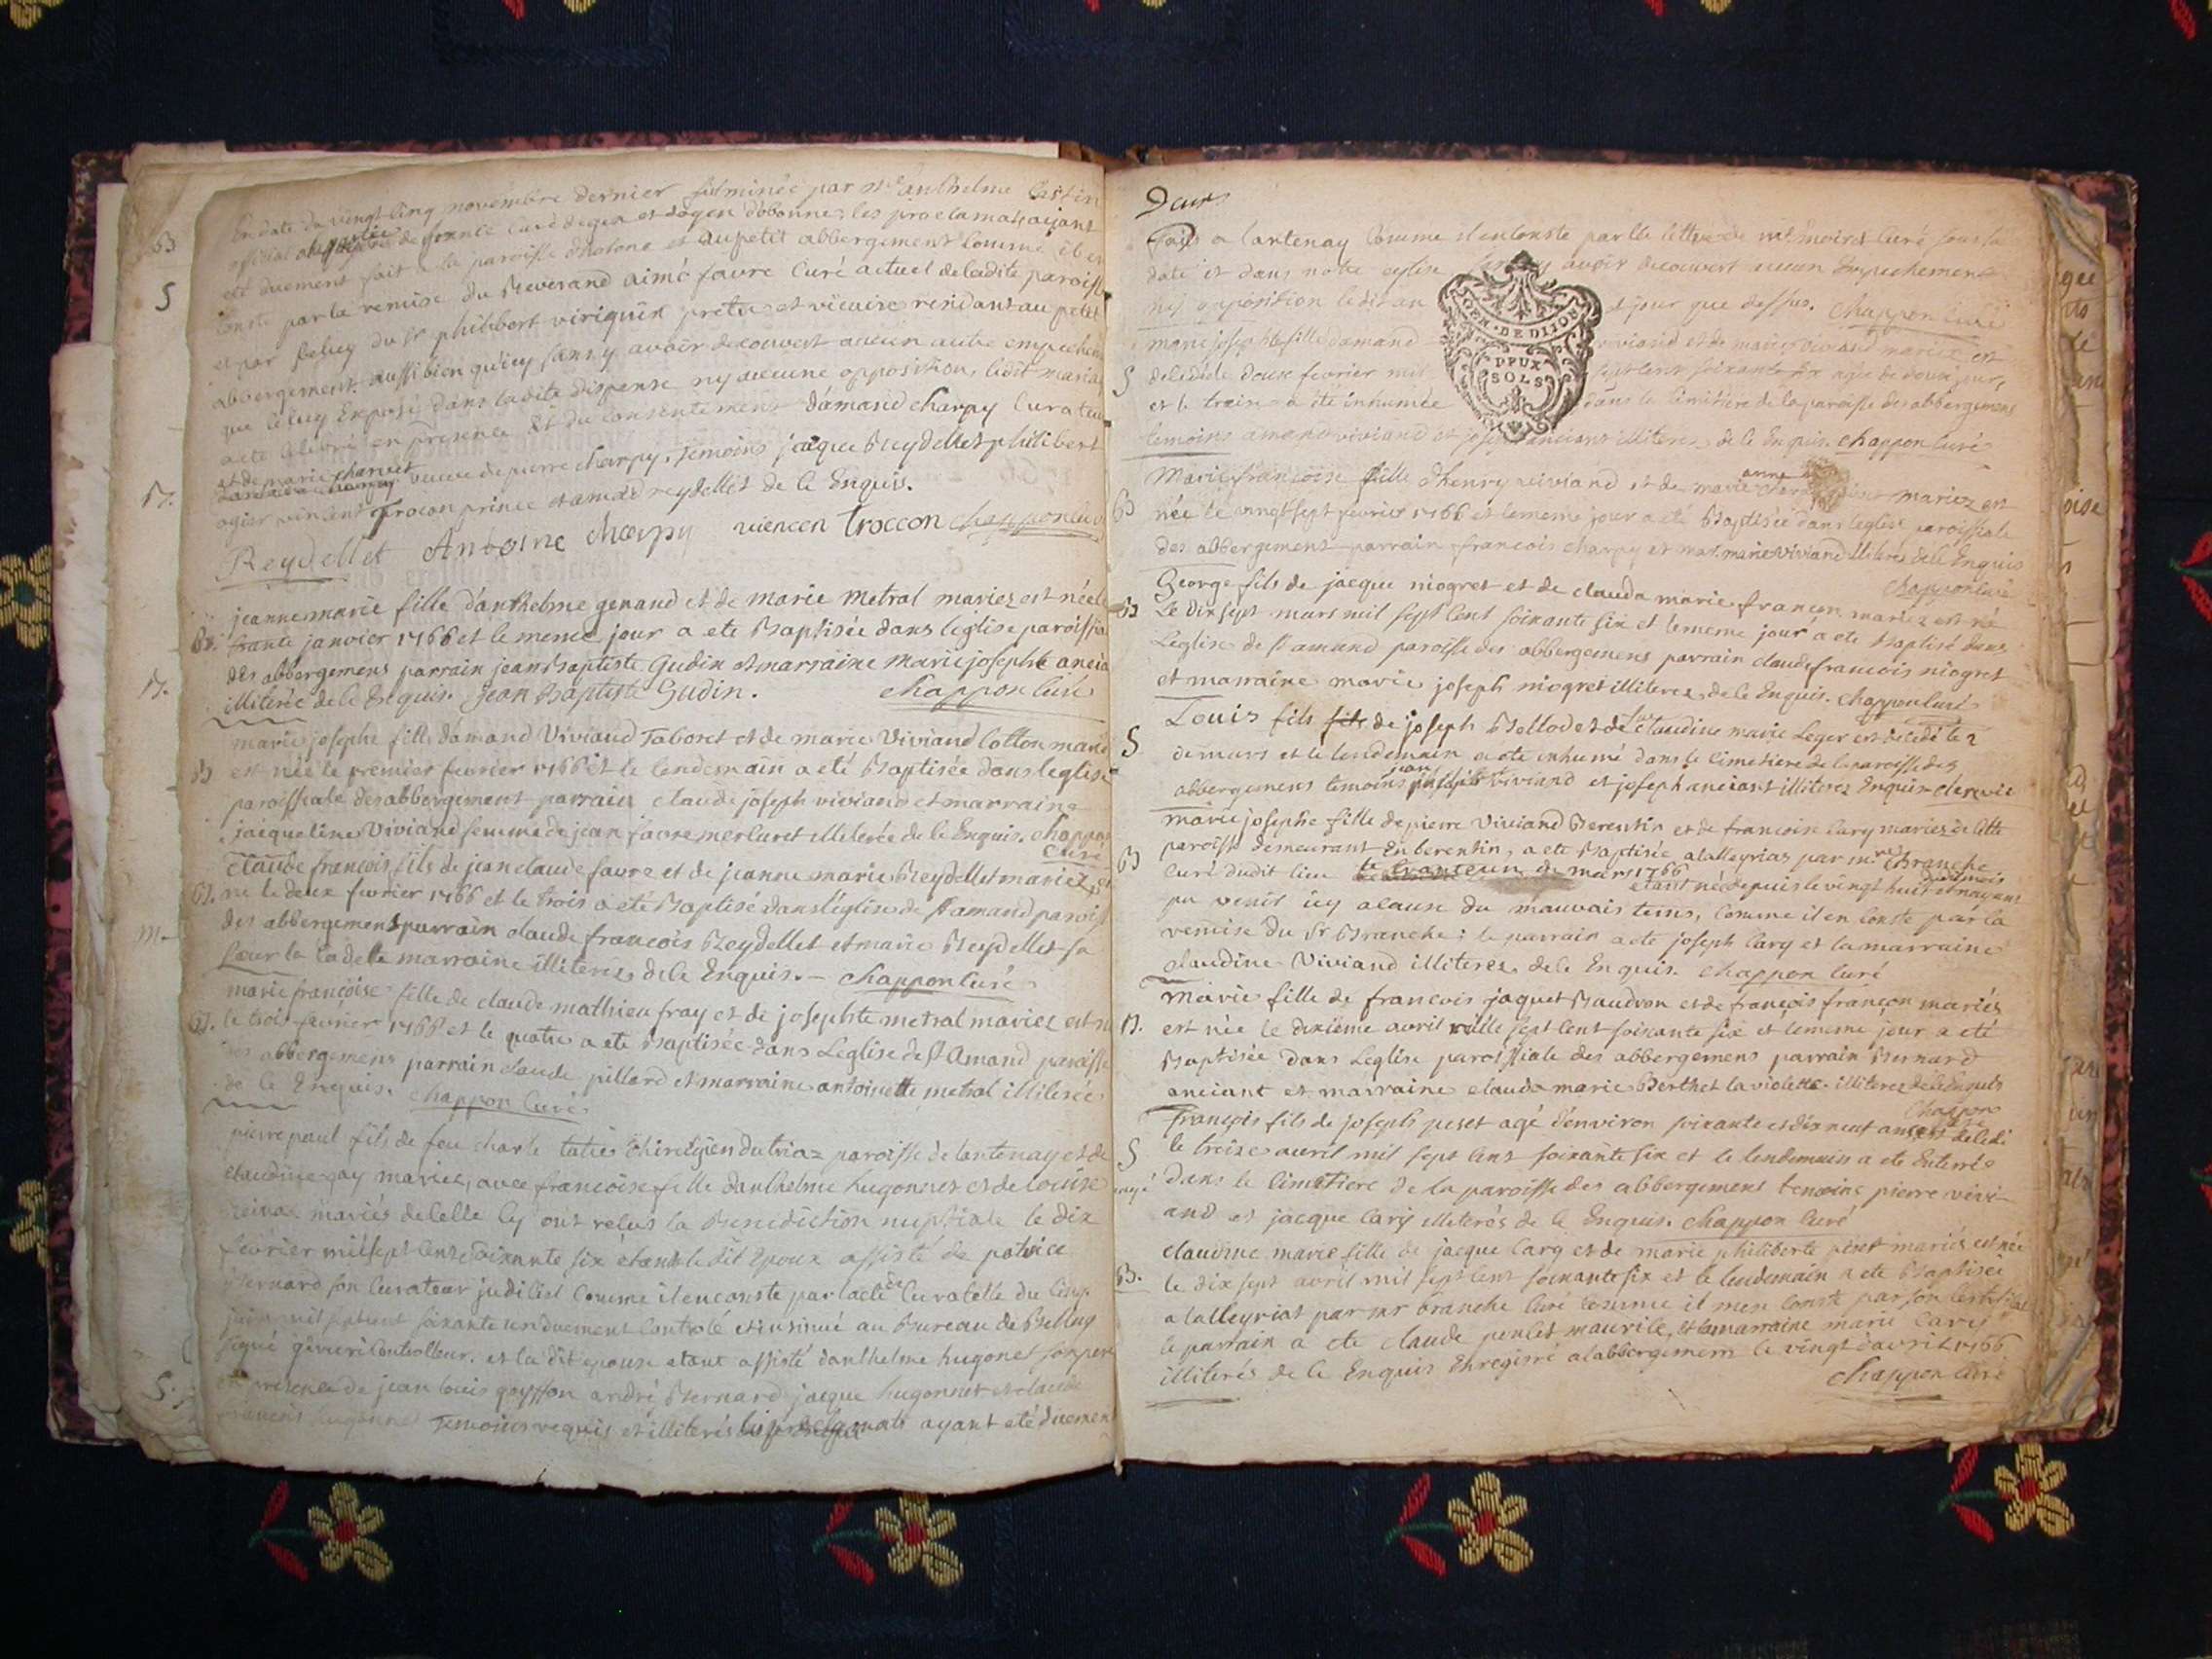 B
En date du vingt cinq novembre dernier fulminée par Mre anthelme
official de france curé de gex et doyen d'obonne, les proclamats ayant
S
eté duement fait a la paroisse dhotone et au petit abbergement comme il en
conste par la remise du Reverand aimé favre curé actuel de ladite paroisse
et par celuy du Sr philibert viriquin pretre et vicaire residant au petit
abbergement. aussi bien qu'icy sans y avoir decouvert aucun autre empechem
que celuy Exposé dans ladite dispense ny aucune opposition, ledit maria
a ete celebré en presence et du consentement d'amand charpy curateur
et de marie charvet
veuve de pierre charpy. temoins jacque Reydellet philibert
17.
ogier vincent Trocon prince et amand reydellet de ce Enquis.
Reydellet Antoine charpy viencen troccon chappon curé
jeanne marie fille d'anthelme genand et de marie metral mariez est née le
B. trante janvier 1766 et le meme jour a ete Baptisée dans leglise paroissia
des abbergemens parrain jean Baptiste Gudin et marraine marie josephte ancia
17.
illiterée de ce Enquis. Jean Baptiste Gudin. chappon curé
marie josephe fille d'amand Viviand Taboret et de marie Viviand cotton mariez
B est née le premier fevrier 1766 et le lendemain a eté Baptisée dans leglise
paroissiale des abbergement parrain claude joseph viviand et marraine
jacqueline Viviand femme de jean favre mercuret illiterée de ce Enquis. chappon
curé
Claude francois fils de jean claude favre et de jeanne marie Reydellet mariez, est
B. né le deux fevrier 1766 et le trois a eté Baptisé dans l'église de St amand parois
des abbergemens parrain claude francois Reydellet et marie Reydellet sa
m
soeur la cadette marraine illiterez de ce Enquis. – chappon curé
marie francoise fille de claude mathieu fray et de josephte metral mariez est n
B. le trois fevrier 1766 et le quatre a eté Baptisée dans Leglise de St Amand paroisse
des abbergemens parrain claude pillard et marraine antoinette metral illiterée
de ce Enquis. chappon curé
pierre paul fils de feu charle chirurgien du triaz paroisse de lantenay et de
claudine gay mariez, avec francoise fille danthelme hugonnet et de louise
mariés de celle cy ont recus la Benediction nuptiale le dix
fevrier mil sept cent soixante six étant le dit Epoux assisté de patrice
Bernard son curateur judiciel comme il en conste par lacte de curatelle du cinq
juin mil sept cent soixante un duement controlé et insinué au Bureau de Bellay
signé controlleur. et la dite epouse etant assisté danthelme hugonet son pere
S.
en presence de jean louis goyffon andré Bernard jacque hugonnet et claude
francois hugonnet Temoins requis et illiterés les proclamats ayant eté duement
Deux
faits a lantenay comme il en conste par la lettre de curé sous la
date et dans notre eglise sans y avoir decouvert aucun Empechement
ny opposition ledit an et jour que dessus. chappon curé
GEN. DE DIJON
DEUX
SOLS
marie josephte fille d'amand viviand et de marie viviand mariez est
S decedée le douze fevrier mil sept cent soixante six agée de douze jours
et le treize a été inhumée dans le cimitiere de la paroisse des abbergemens
temoins amand viviand et joseph anciant illiterez de ce Enquis. chappon curé
anne
Marie francoise fille d'henry viviand et de marie mariez est
B née le vingt sept fevrier 1766 et le meme jour a eté Baptisée dans leglise paroissiale
des abbergement parrain francois charpy et mar. marie viviand illiterés de ce Enquis
chappon curé
George fils de jacque niogret et de clauda marie francon mariez est né
B Le dix sept mars mil sept cent soixante six et le meme jour a ete Baptisé dans
Leglise de St amand paroisse des abbergemens parrain claude francois niogret
et marraine marie joseph niogret illiterez de ce Enquis. chappon curé
Louis fils fils de joseph Bellod et de claudine marie Leger est decedé le 2
S de mars et le lendemain a ete inhumé dans le cimetiere de la paroisse des
jean
abbergemens temoins viviand et joseph anciant illiterez Enquis
marie josephe fille de pierre Viviand Berentin et de francoise Cary mariez de cette
paroisse demeurant En berentin, a ete Baptisée a lalleyriat par mre Branche
B curé dudit lieu le trante un de mars 1766 dudit mois
etant née depuis le vingt huit et nayant
pu venir icy a cause du mauvais tems, comme il en conste par la
remise du Sr Branche; le parrain a ete joseph Cary et la marraine
claudine Viviand illiterez de ce Enquis. chappon curé
Marie fille de francois jaquet Baudron et de francoise françon mariés
B. est née le dixième avril mille sept cent soixante six et le meme jour a eté
Baptisée dans Leglise paroissiale des abbergemens parrain Bernard
anciant et marraine clauda marie Berthet la violette illiterez de ce Enquis
chappon
curé
francois fils de joseph peset agé d'environ soixante et dix neuf ans est decedé
S le treize avril mil sept cent soixante six et le lendemain a ete Enterré
dans le cimetiere de la paroisse des abbergemens temoins pierre vivi-
and et jacque cary illiterés de ce Enquis. chappon curé
claudine marie fille de jacque Cary et de marie philiberte peset mariés est née
B. le dix sept avril mil sept cent soixante six et le lendemain a ete Baptisée
a lalleyriat par mr branche curé comme il men conste par son certificat
le parrain a ete claude poncet maurile, et la marraine marie Cary
illiterés de ce Enquis Enregistré a labbergement le vingt d'avril 1766
chappon curé